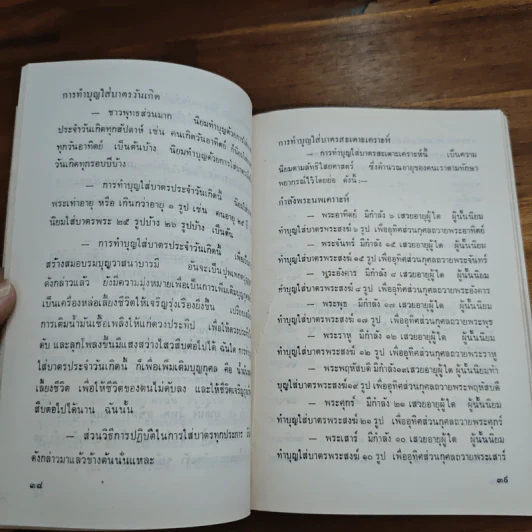 การทำบุญใส่บาตรวันเกิด
— ชาวพุทธส่วนมาก นิยมทำบุญด้วยการใส่
ประจำวันเกิดทุกสัปดาห์ เช่น คนเกิดวันอาทิตย์ ก็นิยม
ทุกวันอาทิตย์ เป็นต้นบ้าง นิยมทำบุญด้วยการใส่บาตร
วันเกิดทุกรอบปีบ้าง
— การทำบุญใส่บาตรประจำวันเกิดนี้ นิยม
พระเท่าอายุ หรือ เกินกว่าอายุ ๑ รูป เช่น คนอายุ ๒๕ ปี
นิยมใส่บาตรพระ ๒๕ รูปบ้าง ๒๖ รูปบ้าง เป็นต้น
— การทำบุญใส่บาตรประจำวันเกิดนี้ เพื่อ
สร้างสมอบรมบุญวาสนาบารมี อันจะเป็น
ดังกล่าวแล้ว ยังมีความมุ่งหมายเพื่อเป็นการเพิ่มเติมบุญกุศล
เป็นเครื่องหล่อเลี้ยงชีวิตให้เจริญรุ่งเรืองยิ่งขึ้น
การเติมน้ำมันเชื้อเพลิงให้แก่ดวงประทีป เพื่อให้ดวง
ดับ และลุกโพลงขึ้นมีแสงสว่างไสวสืบต่อไปได้ ฉันใด การ
ใส่บาตรประจำวันเกิดนี้ ก็เพื่อเพิ่มเติมบุญกุศล คือ
เลี้ยงชีวิต เพื่อให้ชีวิตของตนไม่ดับลง และให้ชีวิตเจริญ
สืบต่อไปได้นาน ฉันนั้น
— ส่วนวิธีการปฏิบัติในการใส่บาตรทุกประการ
ดังกล่าวมาแล้วข้างต้นนั่นแหละ
๓๘
การทำบุญใส่บาตรสะเดาะเคราะห์
— การทำบุญใส่บาตรสะเดาะเคราะห์นี้ เป็นความ
นิยมตามลัทธิไสยศาสตร์ ซึ่งคำนวณอายุของคนเราตามทักษา
พยากรณ์ไว้โดยย่อ ดังนี้:—
กำลังพระนพเคราะห์
— พระอาทิตย์ มีกำลัง ๖ เสวยอายุผู้ใด ผู้นั้นนิยม
ทำบุญใส่บาตรพระสงฆ์ ๖ รูป เพื่ออุทิศส่วนกุศลถวายพระอาทิตย์
— พระจันทร์ มีกำลัง ๑๕ เสวยอายุผู้ใด ผู้นั้นนิยม
ทำบุญใส่บาตรพระสงฆ์ ๑๕ รูป เพื่ออุทิศส่วนกุศลถวายพระจันทร์
— พระอังคาร มีกำลัง ๘ เสวยอายุผู้ใด ผู้นั้นนิยม
ทำบุญใส่บาตรพระสงฆ์ ๘ รูป เพื่ออุทิศส่วนกุศลถวายพระอังคาร
— พระพุธ มีกำลัง ๑๗ เสวยอายุผู้ใด ผู้นั้นนิยม
ทำบุญใส่บาตรพระสงฆ์ ๑๗ รูป เพื่ออุทิศส่วนกุศลถวายพระพุธ
— พระราหู มีกำลัง ๑๒ เสวยอายุผู้ใด ผู้นั้นนิยม
ทำบุญใส่บาตรพระสงฆ์ ๑๒ รูป เพื่ออุทิศส่วนกุศลถวายพระราหู
— พระพฤหัสบดี มีกำลัง ๑๙ เสวยอายุผู้ใด ผู้นั้นนิยมทำ
บุญใส่บาตรพระสงฆ์ ๑๙ รูป เพื่ออุทิศส่วนกุศลถวายพระพฤหัสบดี
— พระศุกร์ มีกำลัง ๒๑ เสวยอายุผู้ใด ผู้นั้นนิยม
ทำบุญใส่บาตรพระสงฆ์ ๒๑ รูป เพื่ออุทิศส่วนกุศลถวายพระศุกร์
— พระเสาร์ มีกำลัง ๑๐ เสวยอายุผู้ใด ผู้นั้นนิยม
ทำบุญใส่บาตรพระสงฆ์ ๑๐ รูป เพื่ออุทิศส่วนกุศลถวายพระเสาร์
๓๙